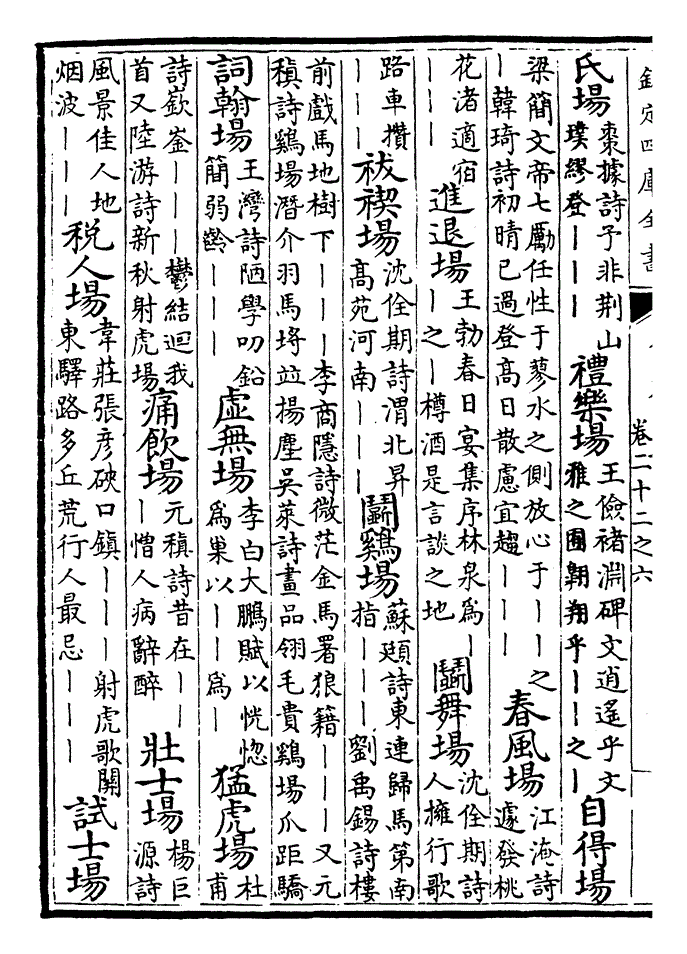 欽定四庫全書 卷二十二之六
氏場 棗據詩予非荆山璞繆登｜｜｜ 禮樂場 王儉褚淵碑文逍遙乎文雅之囿翺翔乎｜｜之｜ 自得場
梁簡文帝七勵任性于蓼水之側放心于｜｜之｜韓琦詩初晴已過登高日散慮宜趨｜｜｜ 春風場 江淹詩遽發桃
花渚適宿｜｜｜ 進退場 王勃春日宴集序林泉為｜｜之｜樽酒是言談之地 鬭舞場 沈佺期詩人擁行歌
路車攢｜｜｜ 祓禊場 沈佺期詩渭北昇高苑河南｜｜｜ 鬭鷄場 蘇頲詩東連歸馬第南指｜｜｜劉禹錫詩樓
前戲馬地樹下｜｜｜李商隱詩微茫金馬署狼籍｜｜｜又元稹詩鷄場潛介羽馬埒並揚塵吳萊詩畫品翎毛貴鷄場爪距驕
詞翰場 王灣詩陋學叨鉛簡弱齡｜｜｜ 虛無場 李白大鵬賦以恍惚為巢以｜｜為｜ 猛虎場 杜甫
詩嶔崟｜｜｜鬱結迴我首又陸游詩新秋射虎場 痛飲場 元稹詩昔在｜｜｜憎人病辭醉 壯士場 楊巨源詩
風景佳人地烟波｜｜｜ 税人場 韋莊張彥硤口鎮｜｜｜射虎歌關東驛路多丘荒行人最忌｜｜｜ 試士場